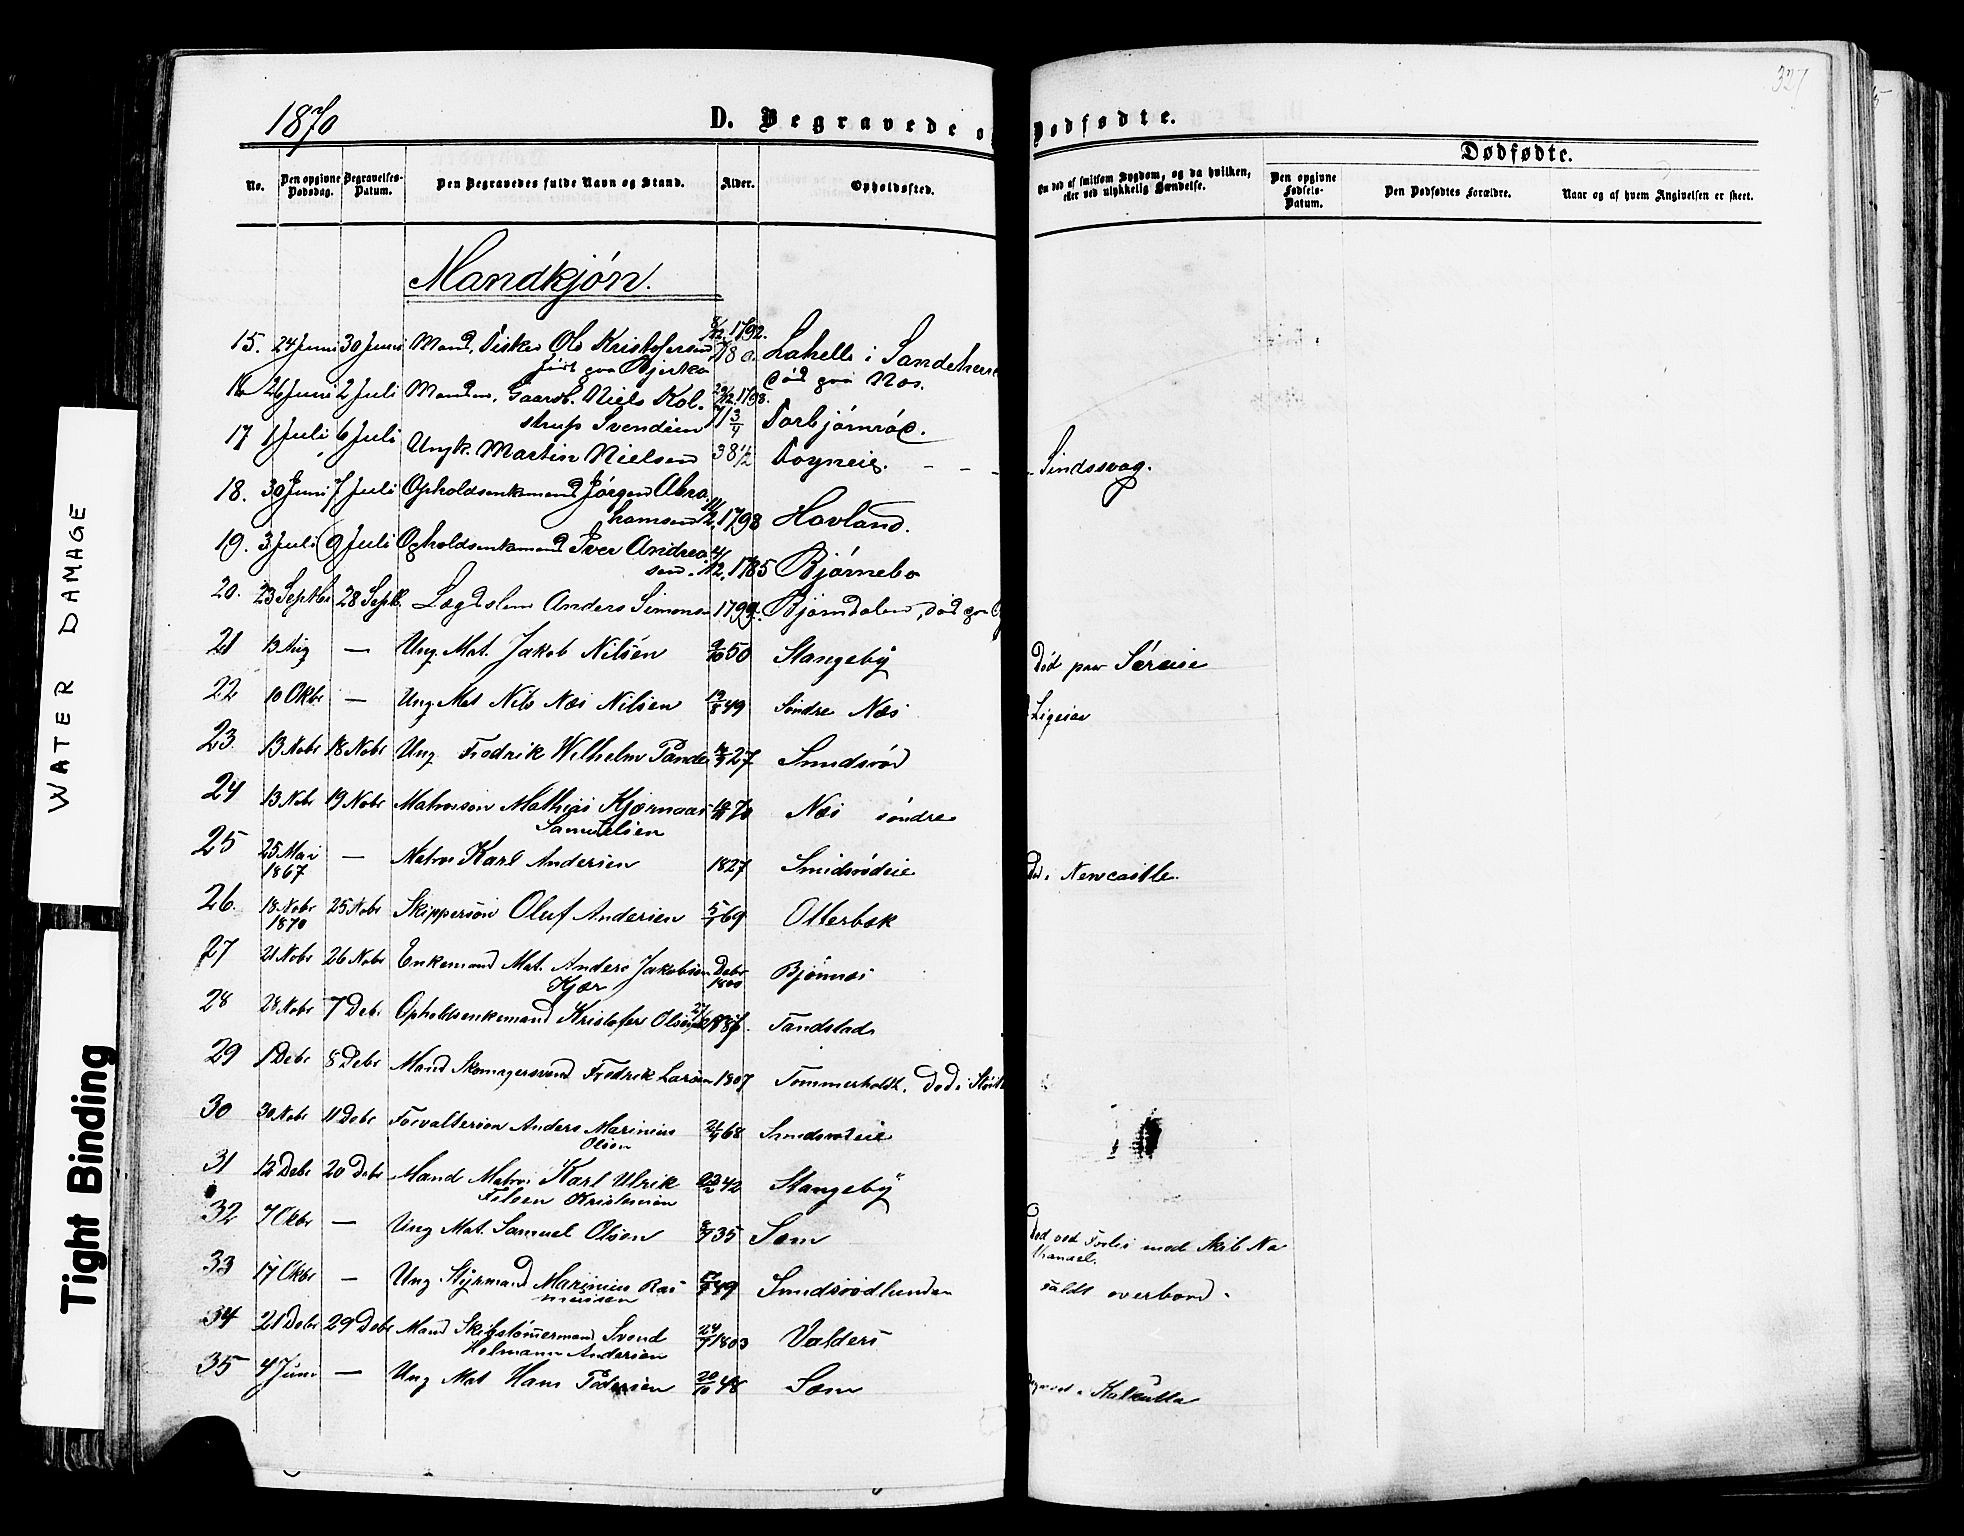 327
1870
D. Begravede o Dødfødte.
Dødfødte.
No. Den opgivne Dødsdag. Begravelses-Datum. Den Begravedes fulde Navn og Stand. Alder. Opholdssted. Om død af smitsom Sygdom, og da hvilken, eller ved ulykkelig Hændelse. Den opgivne Fødsels-Datum. Den Dødfødtes Forældre. Naar og af hvem Angivelsen er skeet.
Mandkjøn.
15. 24 Juni 30 Juni Mand, Fisker Ole Kristofersen 1792. Lahelle i Sandeherre
født paa Bjerke 78 a. død paa Nes.
16 26 Juni 2 Juli Gaardb. Niels Kol- 1798.
strup Svendsen 71 3/4 Torbjørnrød.
17 1 Juli 6 Juli Ungk. Martin Nielsen 38 1/2 - - - Sindssvag.
18. 30 Juni 7 Juli Opholdsenkemand Jørgen Abra-
hamsen 1798 Havland.
19. 3 Juli 9 Juli Opholdsenkemand Iver Andrea-
sen. 1785 Bjørnebo
20. 23 Septbr 28 Septb. Lægdslem Anders Simonsen 1799. Bjørndalen, død paa
21 13 Aug — Ung. Mat. Jakob Nilsen 50 Stangeby Død paa
22 10 Okbr — Ung. Mat Nils Næs Nilsen 19/8 49 Søndre Næs Ligesaa
23. 13 Nobr 18 Nobr Ung Fredrik Wilhelm 27 Smidsrød
24 13 Nobr 19 Nobr Matrosson Mathias Kjærnaas 70 Næs søndre
Samuelsen
25 25 Mai — Matros Karl Andersen 1827 Smidsrødeie Død i Newcastle.
1867
26. 18 Nobr 25 Nobr Skippersøn Oluf Andersen 69 Otterbæk
1870
27 21 Nobr 26 Nobr Enkemand Mat. Anders Jakobsen Debr Bjønnes
Kjær 1800
28 28 Nobr 7 Debr Opholdsenkemand Kristofer Olsen Tandstad
29 1 Debr 8 Debr Mand Skomagersvend Fredrik Larsen 1807 Tommerholdt. Død i
30 30 Nobr 11 Debr Forvaltersøn Anders Marinius 68 Smidsrødeie
Olsen
31 12 Debr 20 Debr Mand Matros Karl Ulrik 42 Stangeby
Kristensen
32 7 Okbr — Ung Mat. Samuel Olsen 35 Sæm Død ved Forlis med Skib Na
33 17 Okbr — Ung Styrmand Marinius Ras 49 Smidsrødlunden Faldt overbord.
mussen
34 21 Debr 29 Debr Mand Skibstømmermand Svend 24/7 1803 Valders
Holmann Andersen
35 4 Juni — Ung Mat Hans Pedersen 20/10 48 Sæm Kalkutta
WATER DAMAGE
Tight Binding